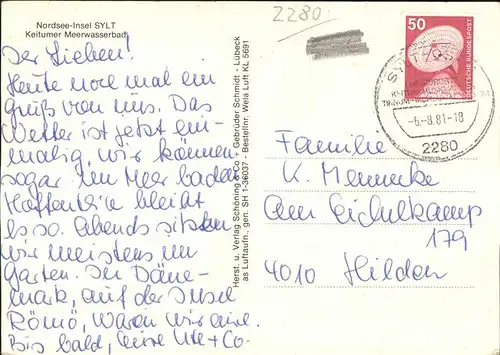 Nordsee-Insel SYLT
Keitumer Meerwasserbad
2280
50
DEUTSCHE BUNDESPOST
-6.-8.81-18
2280
Ihr Lieben!
Heute noch mal ein
Gruß von uns. Das
Wetter ist jetzt ein-
malig, wir können
sogar im Meer baden
Hoffentlich bleibt
es so. Abends sitzen
wir meistens im
Garten. In Däne-
mark, auf der Insel
Römö, waren wir auch.
Bis bald, Eure Ute + Co.
Herst. u. Verlag Schöning & Co. + Gebrüder Schmidt - Lübeck
as Luftaufn., gen. SH 1-36037 - Bestellnr. Wela Luft KL 5691
Familie
K. Mennecke
Am Eichelkamp
179
4010 Hilden